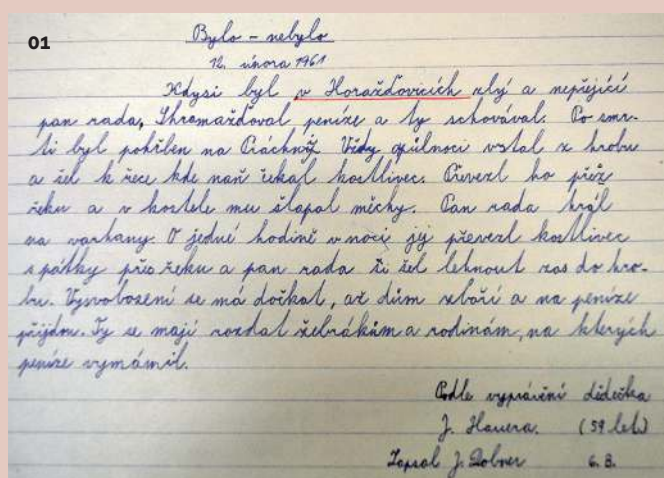 01
Bylo - nebylo
12. února 1961
Kdysi byl v Horažďovicích zlý a nepřející
pan rada. Shromažďoval peníze a ty schovával. Po smr-
ti byl pohřben na Práchni. Vždy o půlnoci vstal z hrobu
a šel k řece kde naň čekal kostlivec. Převezl ho přez
řeku a v kostele mu šlapal měchy. Pan rada hrál
na varhany. O jedné hodině v noci jej převezl kostlivec
zpátky přes řeku a pan rada šel lehnout zas do hro-
bu. Vysvobození se má dočkat, až dům zboří a na peníze
přijdou. Ty se mají rozdat žebrákům a rodinám, na kterých
peníze vymámil.
Podle vyprávění dědečka
J. Hauera. (59 let)
Zapsal J. Dobner 6. B.